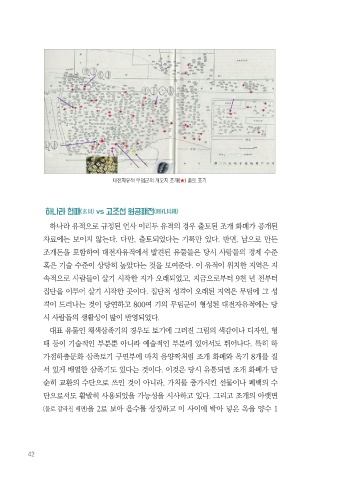 대전자유적 무덤군의 개오지 조개(★) 출토 표기
하나라 현패(玄貝) vs 고조선 원공패전(圓孔貝錢)
하나라 유적으로 규정된 언사 이리두 유적의 경우 출토된 조개 화폐가 공개된
자료에는 보이지 않는다. 다만, 출토되었다는 기록만 있다. 반면, 납으로 만든
조개돈을 포함하여 대전자유적에서 발견된 유물들은 당시 사람들의 경제 수준
혹은 기술 수준이 상당히 높았다는 것을 보여준다. 이 유적이 위치한 지역은 지
속적으로 사람들이 살기 시작한 지가 오래되었고, 지금으로부터 9천 년 전부터
집단을 이루어 살기 시작한 곳이다. 집단적 성격이 오래된 지역은 무덤에 그 성
격이 드러나는 것이 당연하고 800여 기의 무덤군이 형성된 대전자유적에는 당
시 사람들의 생활상이 많이 반영되었다.
대표 유물인 채색삼족기의 경우도 토기에 그려진 그림의 색감이나 디자인, 형
태 등이 기술적인 부분뿐 아니라 예술적인 부분에 있어서도 뛰어나다. 특히 하
가점하층문화 삼족토기 구연부에 마치 음양쩍처럼 조개 화폐와 옥기 8개를 질
서 있게 배열한 삼족기도 있다는 것이다. 이것은 당시 유통되던 조개 화폐가 단
순히 교환의 수단으로 쓰인 것이 아니라, 가치를 증가시킨 선물이나 폐백의 수
단으로서도 활발히 사용되었을 가능성을 시사하고 있다. 그리고 조개의 아랫면
(둘로 갈라진 배면)을 2로 보아 음수를 상징하고 이 사이에 박아 넣은 옥을 양수 1
42